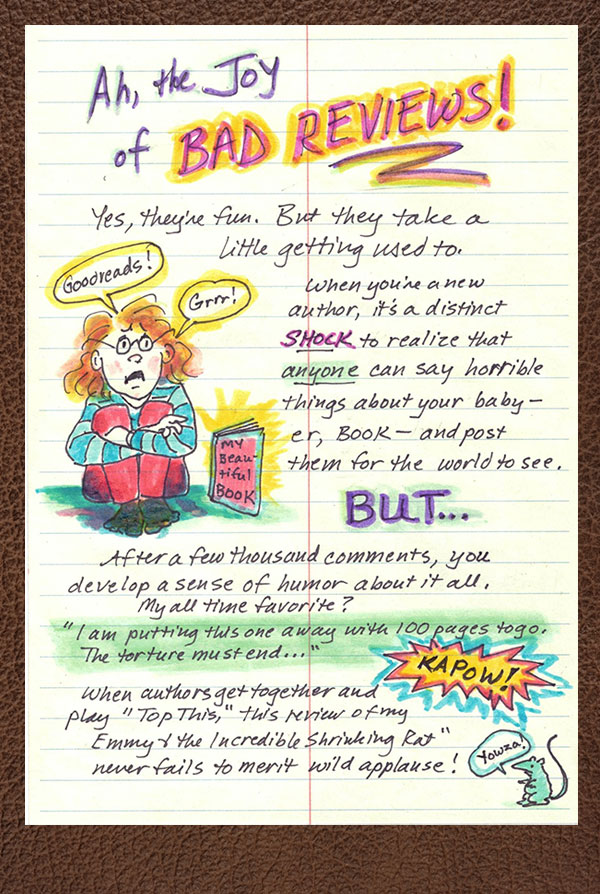 Ah, the Joy
of BAD REVIEWS!
Yes, they're fun. But they take a
little getting used to.
Goodreads!
Grrr!
My
Beau-
tiful
BOOK
When you're a new
author, it's a distinct
SHOCK to realize that
anyone can say horrible
things about your baby—
er, BOOK— and post
them for the world to see.
BUT...
After a few thousand comments, you
develop a sense of humor about it all.
My all time favorite?
"I am putting this one away with 100 pages to go.
The torture must end..."
KAPOW!
When authors get together and
play "Top This," this review of my
Emmy & the Incredible Shrinking Rat"
never fails to merit wild applause!
Yowza!